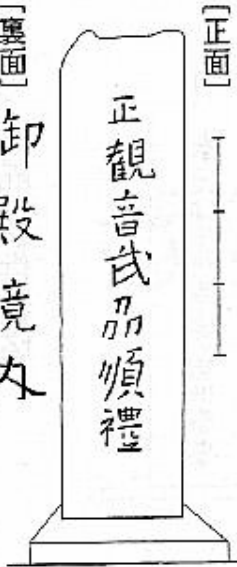 [正面]
正觀音武刕順禮
[裏面]
御殿境内